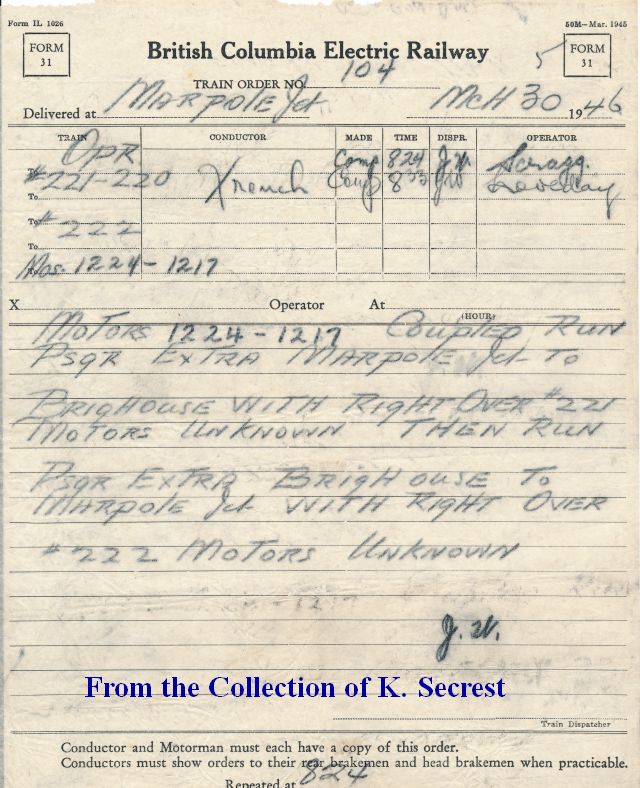 Form IL 1026
50M—Mar. 1945
FORM
31
British Columbia Electric Railway
5
FORM
31
TRAIN ORDER NO. 104
Delivered at Marpole Jct McH 30 1946
TRAIN CONDUCTOR MADE TIME DISPR. OPERATOR
OPR Comp 824 J.W. Scragg.
To #221-220 French Comp 833 JW Loveday
To
To # 222
To
To Mos. 1224-1217
X Operator At
(HOUR)
MOTORS 1224-1217 COUPLED RUN
PSGR EXTRA MARPOLE Jct TO
BRIGHOUSE WITH RIGHT OVER #221
MOTORS UNKNOWN THEN RUN
PSGR EXTRA BRIGHOUSE TO
MARPOLE Jct WITH RIGHT OVER
#222 MOTORS UNKNOWN
J.W.
From the Collection of K. Secrest
Train Dispatcher
Conductor and Motorman must each have a copy of this order.
Conductors must show orders to their rear brakemen and head brakemen when practicable.
Repeated at 824